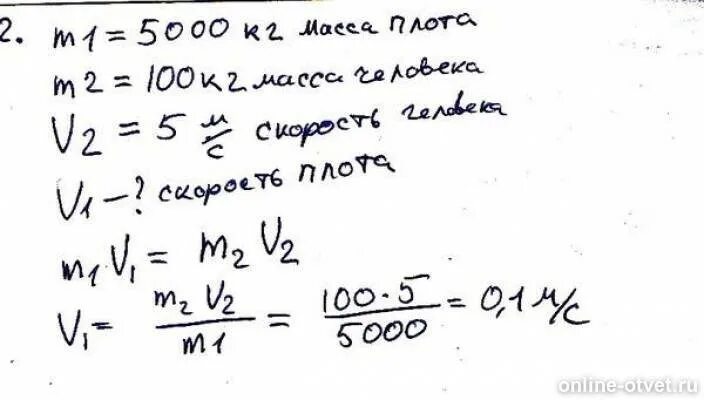 2. m1 = 5000 кг масса плота
m2 = 100 кг масса человека
V2 = 5 м/с скорость человека
V1 - ? скорость плота
m1 V1 = m2 V2
V1 = m2 V2 / m1 = 100 · 5 / 5000 = 0,1 м/с
online-otvet.ru